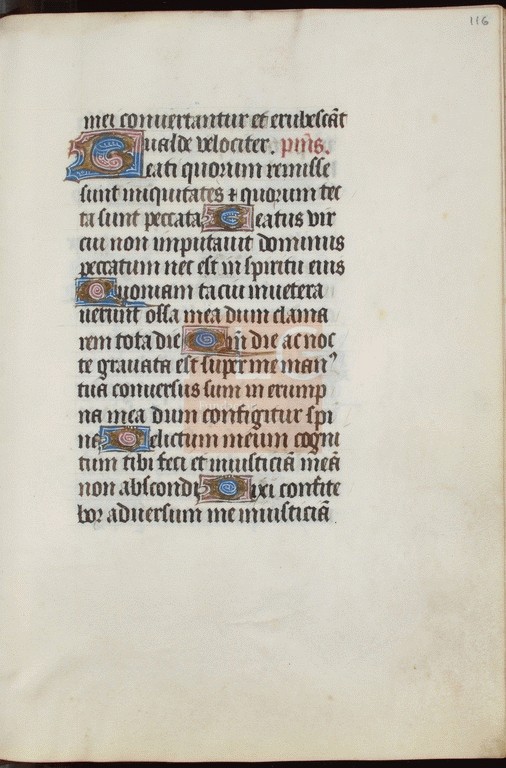 116
mei convertantur et erubescāt
valde velociter. p̄ms.
Beati quorum remisse
sunt iniquitates ⁊ quorum tec
ta sunt peccata Beatus vir
cui non imputavit dominus
peccatum nec est in spiritu eius
Quoniam tacui invetera
verunt ossa mea dum clama
rem tota die Qm̄ die ac noc
te gravata est super me manꝰ
tua conversus sum in erump
na mea dum configitur spi
na Delictum meum cogni
tum tibi feci et iniusticiā meā
non abscondi Dixi confite
bor adversum me iniusticiā